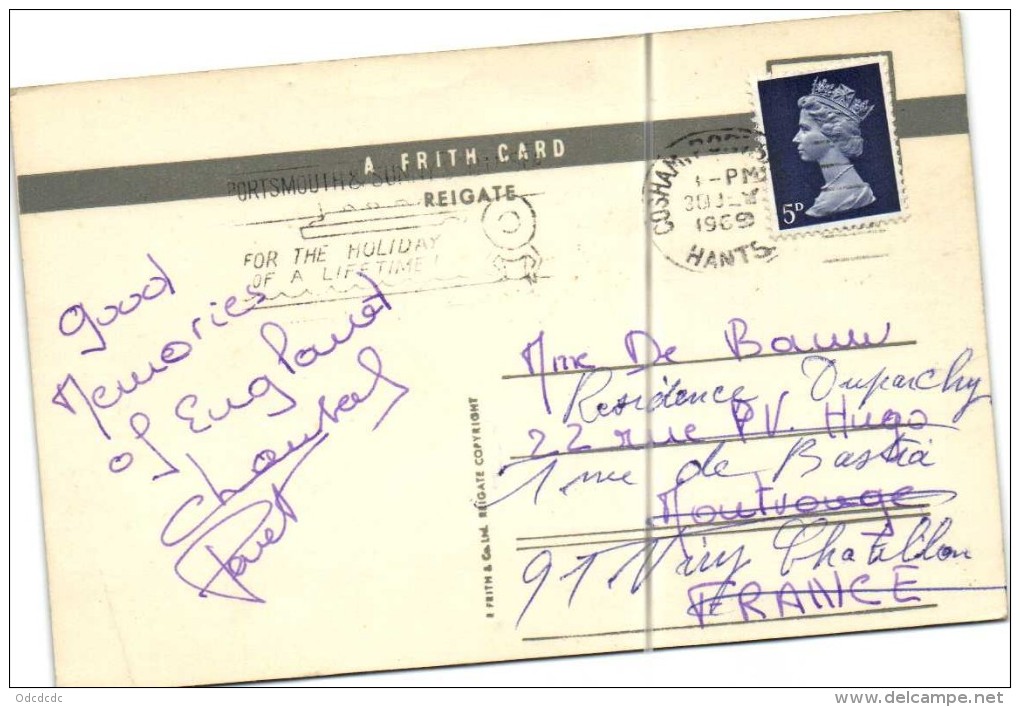 A FRITH CARD
REIGATE
PORTSMOUTH & SUNNY
FOR THE HOLIDAY
OF A LIFETIME!
COSHAM
PM
1969
HANTS
5D
good
Memories
of England
Chantal
Mme De
Résidence Duparchy
22 rue V. Hugo
1 rue de Bastia
Montrouge
91 Viry Chatillon
FRANCE
F FRITH & Co Ltd. REIGATE COPYRIGHT
Odcdcdc
www.delcampe.net